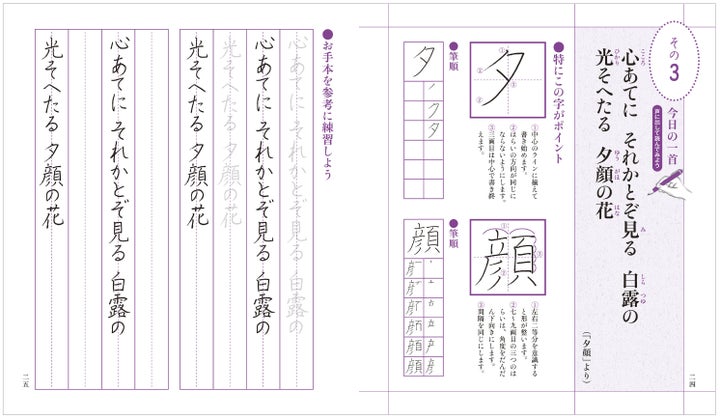 その3
今日の一首
声に出して読んでみよう
心あてに それかとぞ見る 白露の
光そへたる 夕顔の花
こころ
み
しら
つゆ
ひかり
ゆふ
がほ
はな
(「夕顔」より)
二四
●特にこの字がポイント
夕
①中心のラインに揃えて書き始めます。
②はらいの方向が同じにならないようにします。
③三画目は中心で書き終えます。
●筆順
夕
ノ
ク
夕
顔
①左右二等分を意識すると形が整います。
②七~九画目の三つのはらいは、角度をだんだん下向きにします。
③間隔を同じにします。
●筆順
顔
●お手本を参考に練習しよう
心あてに それかとぞ見る 白露の
心あてに それかとぞ見る 白露の
光そへたる 夕顔の花
光そへたる 夕顔の花
心あてに それかとぞ見る 白露の
光そへたる 夕顔の花
二五